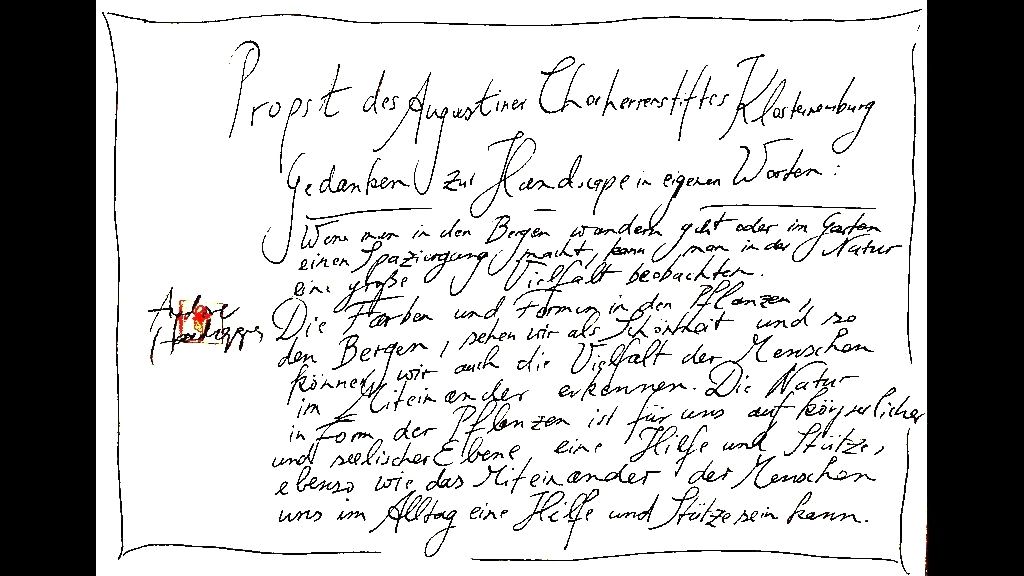 Propst des Augustiner Chorherrenstiftes Klosterneuburg
Gedanken zur Handscape in eigenen Worten:
Wenn man in den Bergen wandern geht oder im Garten
einen Spaziergang macht, kann man in der Natur
eine große Vielfalt beobachten.
Die Farben und Formen in den Pflanzen,
den Bergen, sehen wir als Schönheit und so
können wir auch die Vielfalt der Menschen
im Miteinander erkennen. Die Natur
in Form der Pflanzen ist für uns auf körperlicher
und seelischer Ebene, eine Hilfe und Stütze,
ebenso wie das Miteinander der Menschen
uns im Alltag eine Hilfe und Stütze sein kann.